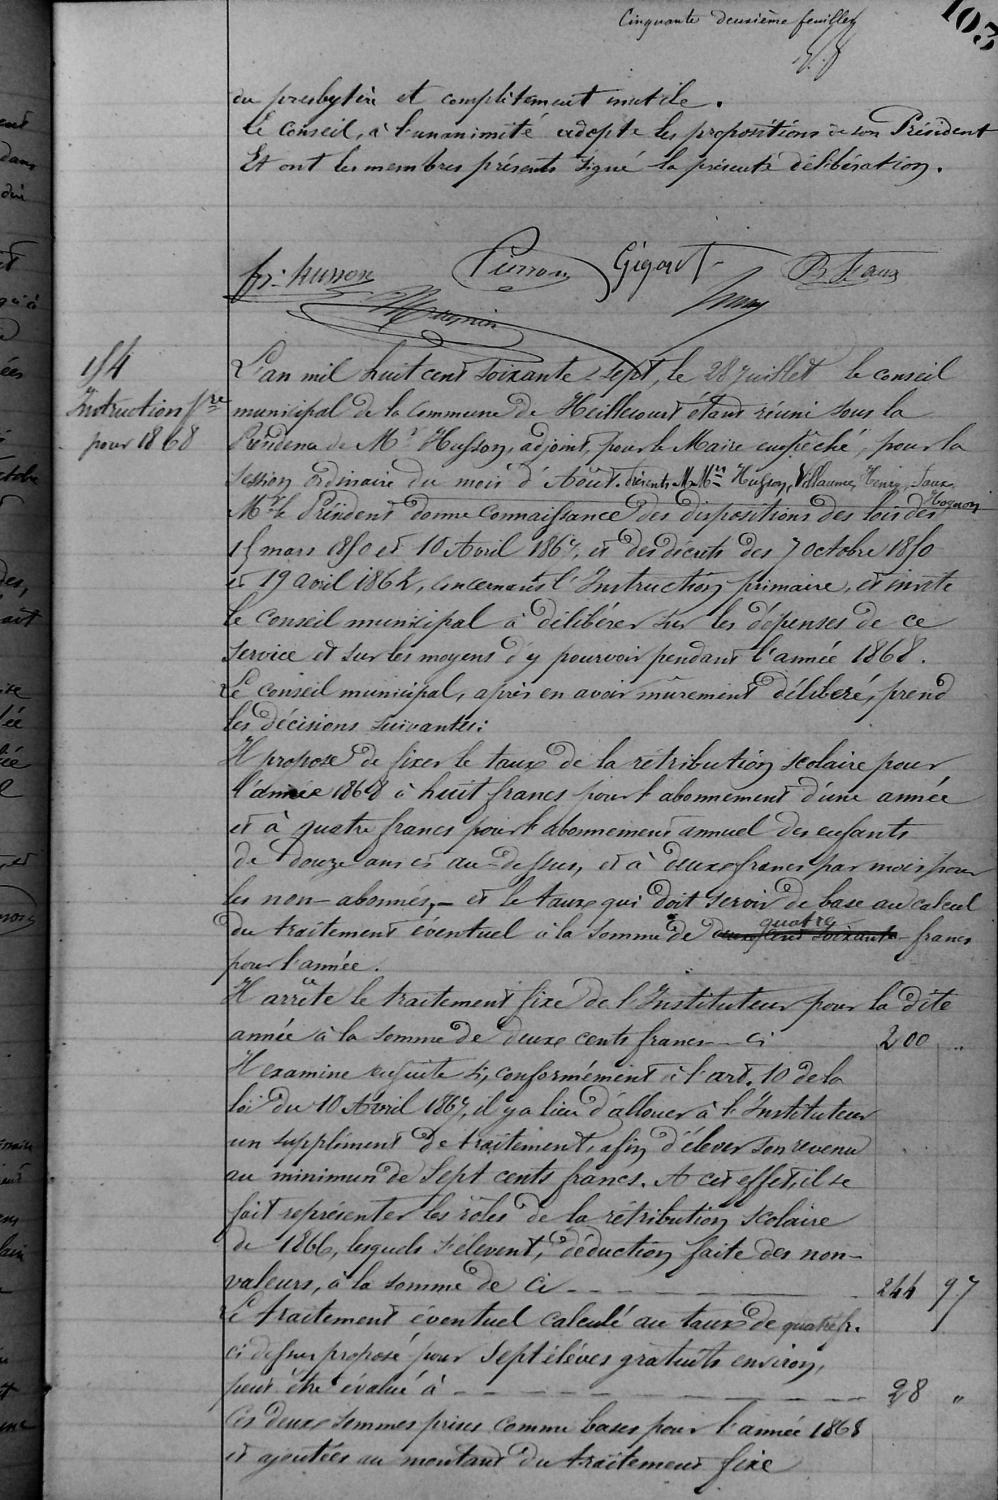 Cinquante deuxième feuillet
103
du presbytère et complètement inutile.
Le Conseil, à l'unanimité adopte les propositions de son Président
Et ont les membres présents signé la présente délibération.
fr. Husson Pierron Gigout
154
Instruction pre
pour 1868
L'an mil huit cent soixante-sept, le 28 Juillet le conseil
municipal de la Commune de Heillecourt étant réuni sous la
Présidence de Mr Husson, adjoint, pour le Maire empêché, pour la
session ordinaire du mois d'Août. Présents M.Mrs Husson, Villaume, Henry, Jaux,
Hognon
Mr le Président donne connaissance des dispositions des lois des
15 mars 1850 et 10 Avril 1867, et des décrets des 7 octobre 1850
et 19 avril 1862, concernant l'Instruction primaire, et invite
le Conseil municipal à délibérer sur les dépenses de ce
service et sur les moyens d'y pourvoir pendant l'année 1868.
Le conseil municipal, après en avoir mûrement délibéré, prend
les décisions suivantes:
Il propose de fixer le taux de la rétribution scolaire pour
l'année 1868 à huit francs pour l'abonnement d'une année
et à quatre francs pour l'abonnement annuel des enfants
de douze ans et au dessus, et à deux francs par mois pour
les non-abonnés, - et le taux qui doit servir de base au calcul
du traitement éventuel à la somme de deux cent soixante quatre francs
pour l'année.
Il arrête le traitement fixe de l'Instituteur pour la dite
année à la somme de deux cents francs ci 200 "
Il examine ensuite si, conformément à l'art. 10 de la
loi du 10 Avril 1867, il y a lieu d'allouer à l'Instituteur
un supplément de traitement, afin d'élever son revenu
au minimun de sept cents francs. A cet effet, il se
fait représenter les rôles de la rétribution scolaire
de 1866, lesquels s'élèvent, déduction faite des non-
valeurs, à la somme de ci 244 97
Le traitement éventuel calculé au taux de quatre fr.
ci dessus proposé pour sept élèves gratuits environ,
peut être évalué à 28 "
Ces deux sommes prises comme bases pour l'année 1868
et ajoutées au montant du traitement fixe